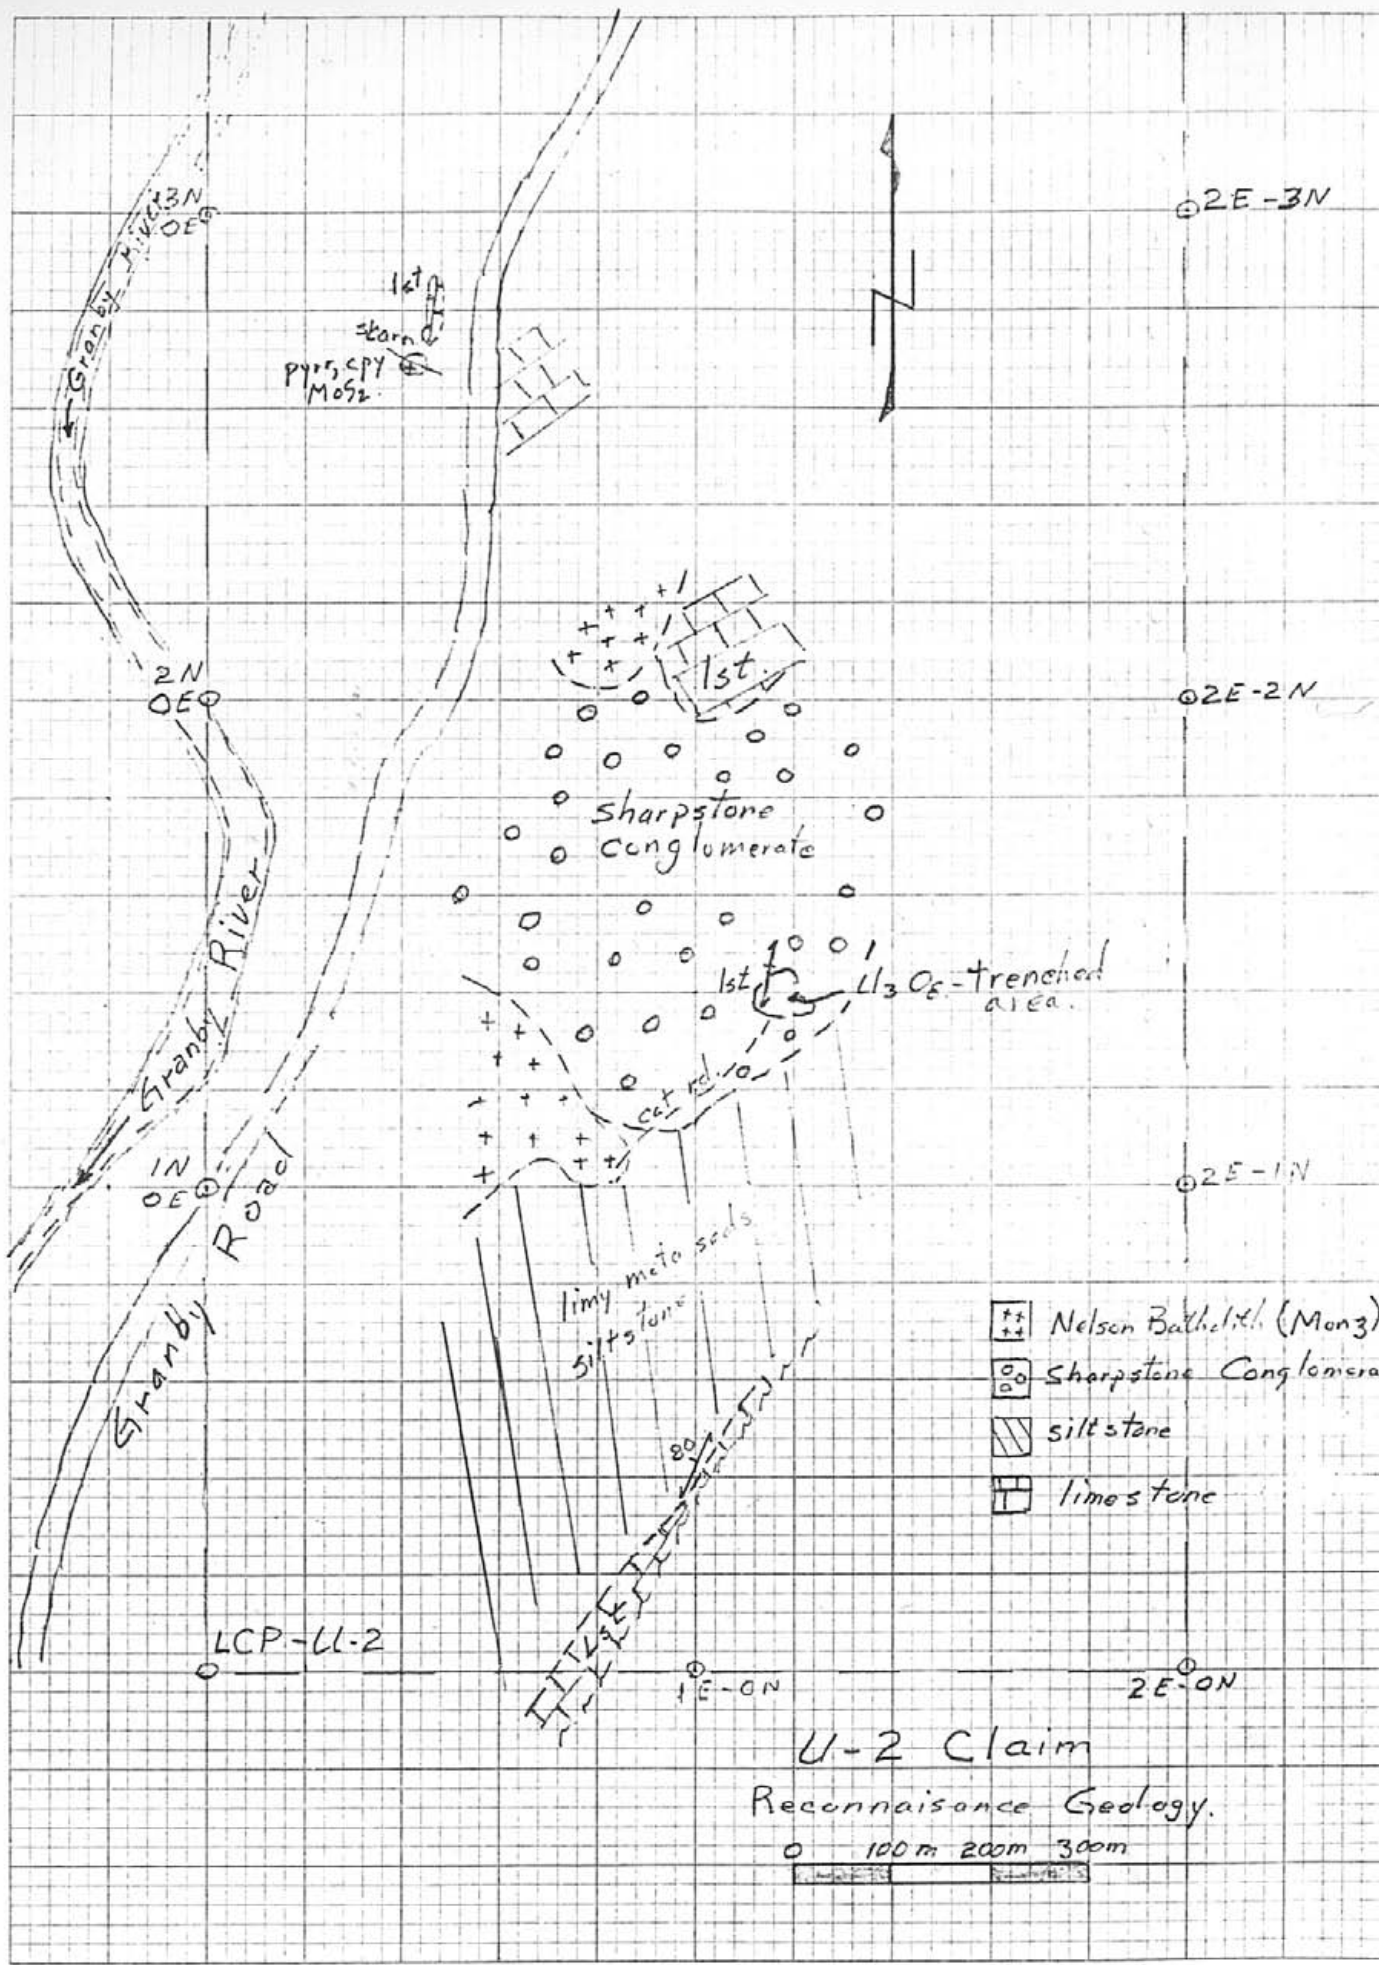 3N
OE
Granby River
2E-3N
lst
skarn
pyrr, cpy
MoS2
2N
OE
lst.
2E-2N
sharpstone
conglomerate
Granby River
lst
U3O8-trenched
area.
cat rd.
1N
OE
2E-1N
Granby Road
limy meta seds
siltstone
Nelson Batholith (Monz)
Sharpstone Conglomera
siltstone
limestone
80
Lst
LCP-U-2
1E-0N
2E-0N
U-2 Claim
Reconnaisance Geology.
0 100m 200m 300m